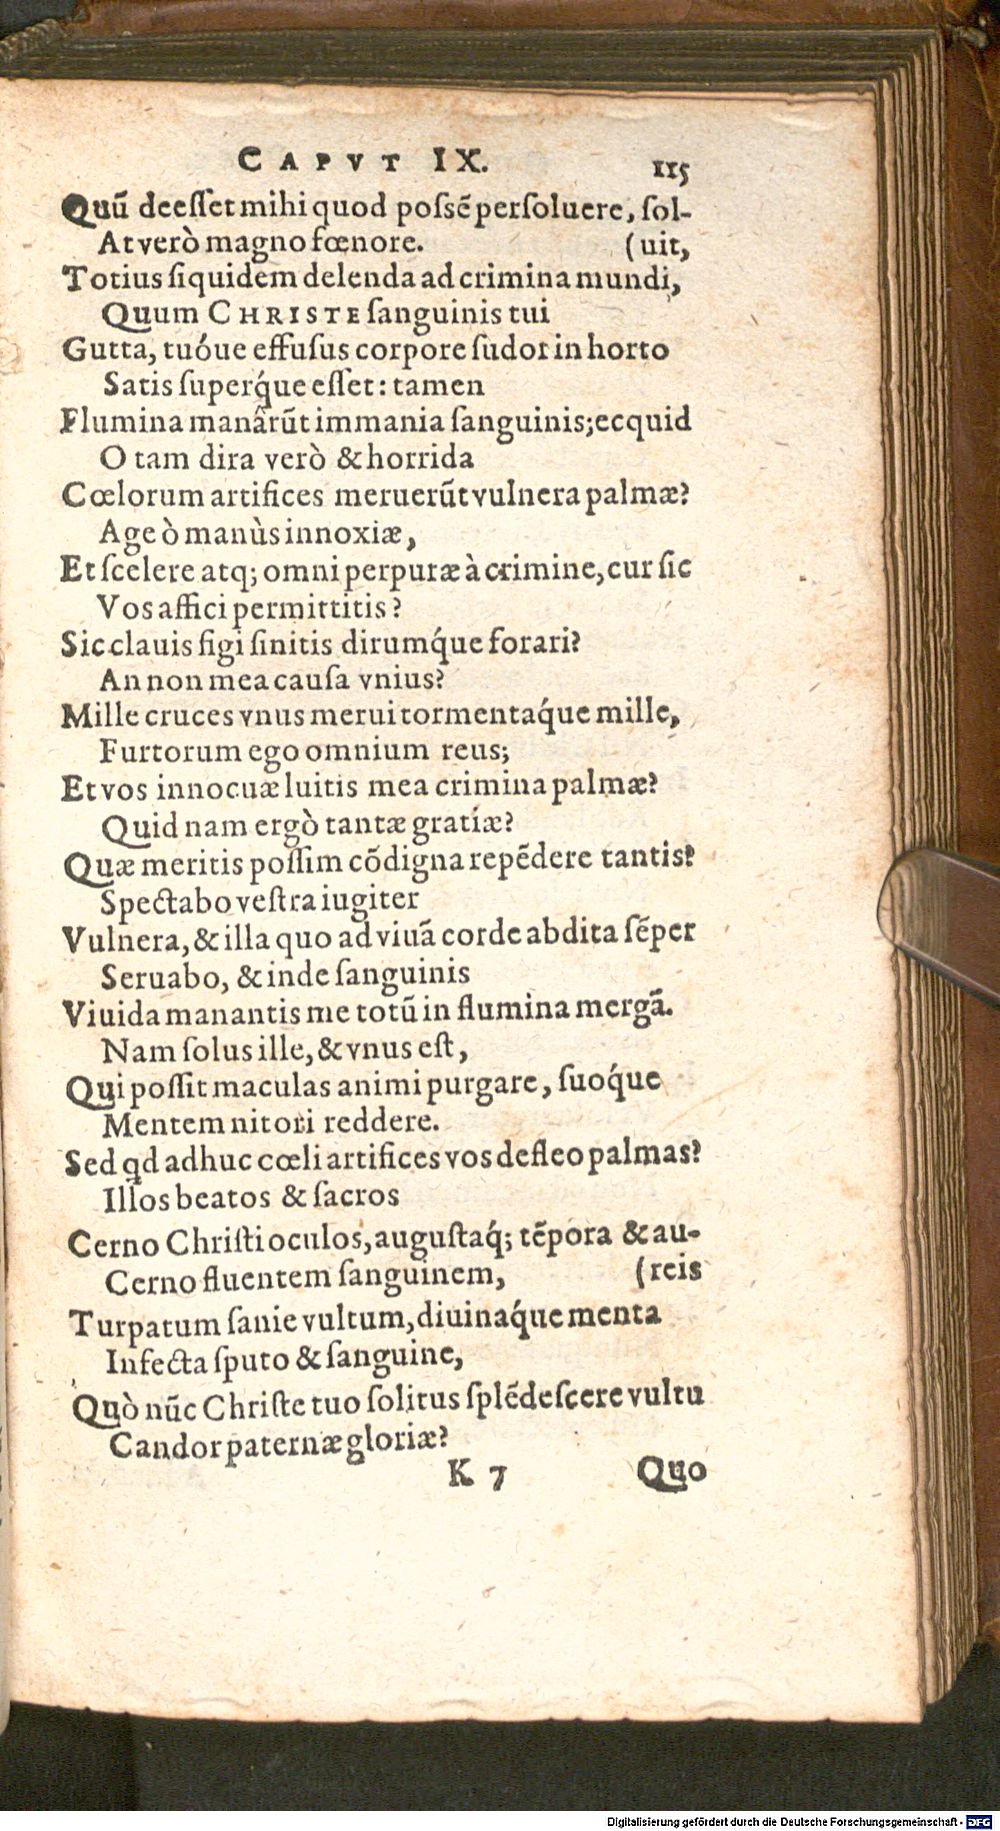 CAPVT IX. 115
Quũ deesset mihi quod possẽ persoluere, sol-
At verò magno fœnore. (uit,
Totius siquidem delenda ad crimina mundi,
Quum CHRISTE sanguinis tui
Gutta, tuóue effusus corpore sudor in horto
Satis superq́ue esset: tamen
Flumina manârũt immania sanguinis; ecquid
O tam dira verò & horrida
Cœlorum artifices meruerũt vulnera palmæ?
Age ò manùs innoxiæ,
Et scelere atq; omni perpuræ à crimine, cur sic
Vos affici permittitis?
Sic clauis figi sinitis dirumq́ue forari?
An non mea causa vnius?
Mille cruces vnus merui tormentaq́ue mille,
Furtorum ego omnium reus;
Et vos innocuæ luitis mea crimina palmæ?
Quid nam ergò tantæ gratiæ?
Quæ meritis possim cõdigna repẽdere tantis?
Spectabo vestra iugiter
Vulnera, & illa quo ad viuã corde abdita sẽper
Seruabo, & inde sanguinis
Viuida manantis me totũ in flumina mergã.
Nam solus ille, & vnus est,
Qui possit maculas animi purgare, suoq́ue
Mentem nitori reddere.
Sed qd adhuc cœli artifices vos defleo palmas?
Illos beatos & sacros
Cerno Christi oculos, augustaq́; tẽpora & au-
Cerno fluentem sanguinem, (reis
Turpatum sanie vultum, diuinaq́ue menta
Infecta sputo & sanguine,
Quò nũc Christe tuo solitus splẽdescere vultu
Candor paternæ gloriæ?
K 7 Quo
Digitalisierung gefördert durch die Deutsche Forschungsgemeinschaft - DFG